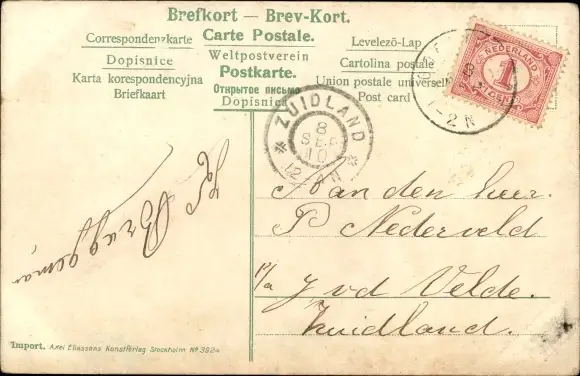 Brefkort — Brev-Kort.
Correspondenzkarte Carte Postale. Levelezö-Lap
Dopisnice Weltpostverein Cartolina postale
Karta korespondencyjna Postkarte. Union postale universelle
Briefkaart Открытое письмо Post card
Dopisnice
NEDERLAND
1
CENT
1-2 N
ZUIDLAND
8
SEP
10
Aan den heer.
P Nederveld
p/a J vd Velde.
Zuidland.
Bruggeman
Import. Axel Eliassons Konstförlag Stockholm No 392